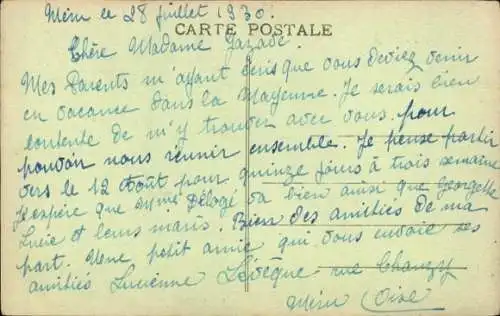 Méru le 28 juillet 1930.
CARTE POSTALE
Chère Madame
Mes Parents m'ayant écris que vous deviez venir
en vacance dans la Mayenne. Je serais bien
contente de m'y trouver avec vous. pour
pouvoir nous réunir ensemble. Je pense partir
vers le 12 Août pour quinze jours à trois semaine
J'espère que Mme Délogé va bien ainsi que Georgette
Lucie et leurs maris. Bien des amitiés de ma
part. Mme petit amie qui vous envoie ses
amitiés Lucienne Lévêque rue Chanzy
Méru Oise